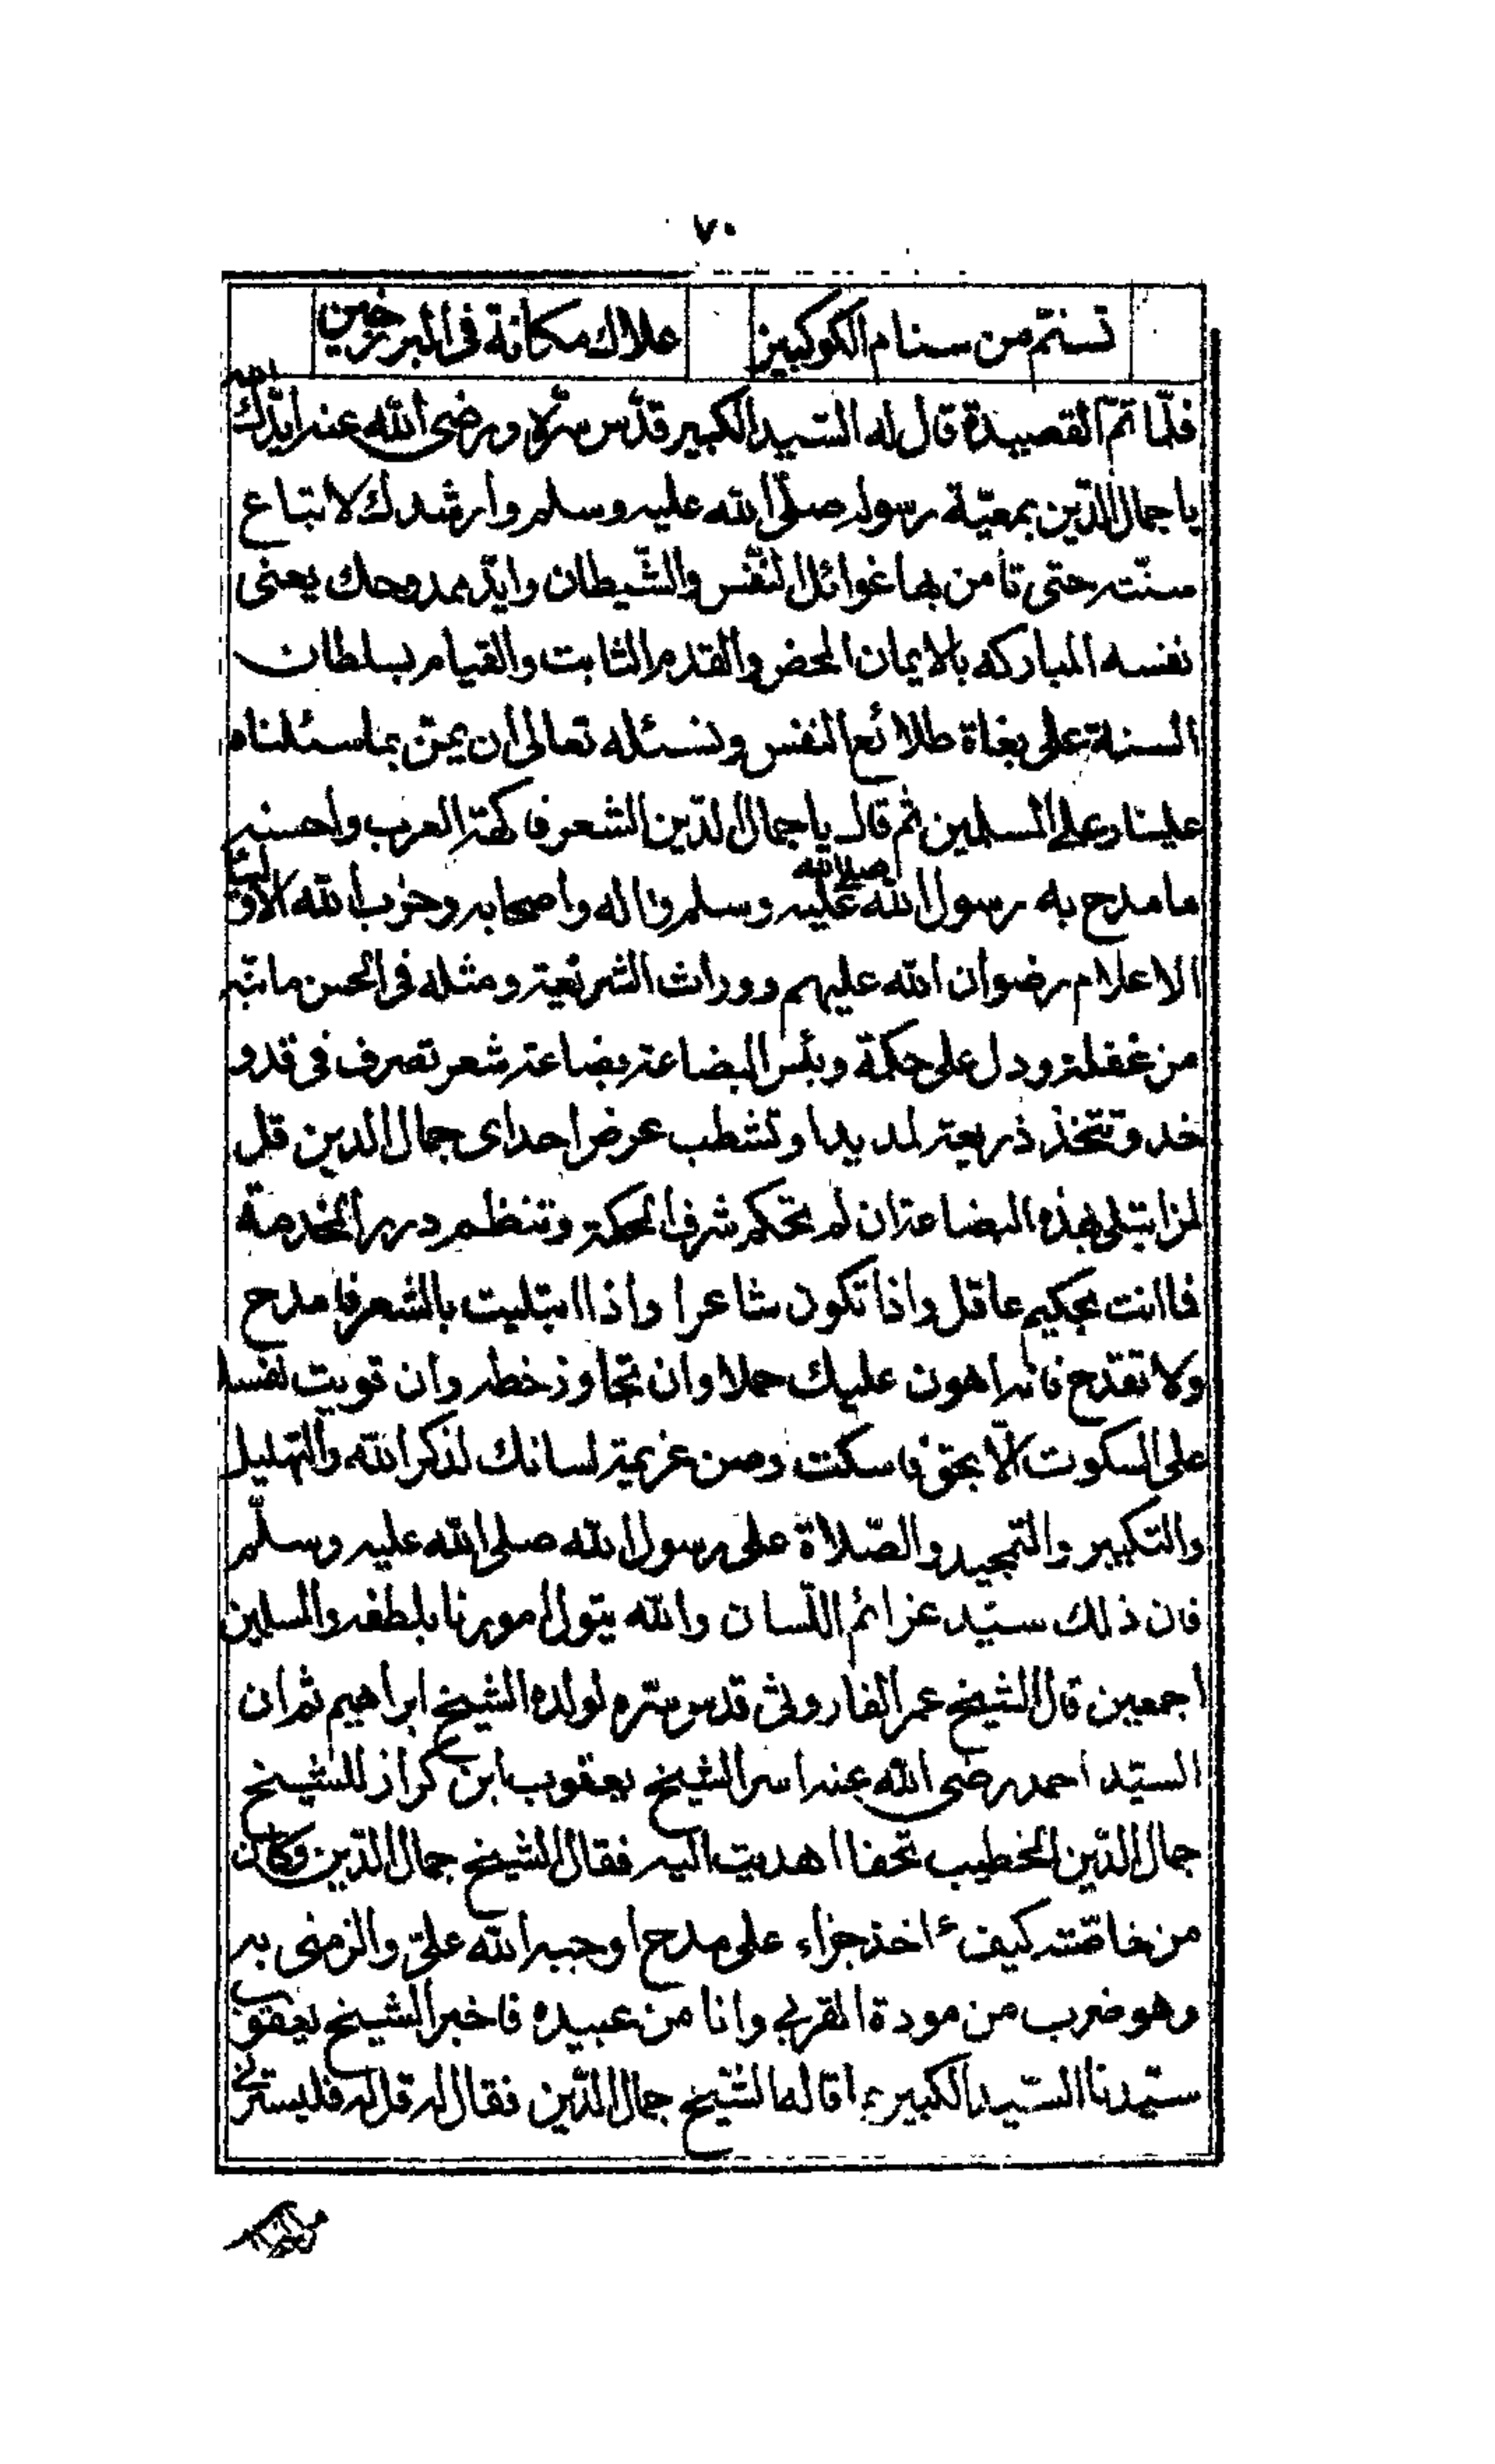 ٧٠
تسنم من سنام الكوكبين علاك مكانة فى البرزخين
فلّما تمّ القصيدة قال له السّيد الكبير قدّس سرّه ورضى الله عنه ايّدك الله
يا جمال الدّين بمعيّة رسوله صلّى الله عليه وسلم وارشدك لاتباع
سنّته حتى تأمن بها غوائل النّفس والشّيطان وايّد ممدوحك يعنى
نفسه المباركه بالايمان المحض والقدم الثابت والقيام بسلطان
السنة على بغاة طلائع النفس ونسئله تعالى ان يمنّ بما سئلناه
علينا وعلى المسلمين ثم قال يا جمال الدّين الشعر فاكهة العرب واحسنه
ما مدح به رسول الله صلى الله عليه وسلم واله واصحابه وحزب الله الاولياء
الاعلام رضوان الله عليهم ووراث الشريعة ومثله فى الحسن ما نبّه
من غفلة ودل على حكمة وبئس البضاعة بضاعة شعر تصرف فى قد و
خد وتتخذ ذريعة لمد يد او تشطب عرض احد اى جمال الدين قل
لمن ابتلى بهذه البضاعة ان لم تحكم شرف الحكمة وتنظم درر الخدمة
فاانت بحكيم عاقل واذا تكون شاعرا واذا ابتليت بالشعر فامدح
ولا تقدح فانه اهون عليك حملا وان تجاوز خطر وان قويت نفسا
على السكوت الّا بحق فاسكت وصن عزيمة لسانك لذكر الله والتهليل
والتكبير والتمجيد والصّلاة على رسول الله صلى الله عليه وسلّم
فان ذلك سيّد عزائم اللّسان والله يتولى امورنا بلطفه والمسلمين
اجمعين قال الشيخ عمر الفاروثى قدس سره لولده الشيخ ابراهيم ثم ان
السيّد احمد رضى الله عنه امر الشيخ يعقوب ابن كراز للشيخ
جمال الدّين الخطيب تحفا اهديت اليه فقال الشيخ جمال الدّين وكان
من خاصّته كيف ءاخذ جزاء على مدح اوجبه الله علىّ والزمنى به
وهو ضرب من مودة القربى وانا من عبيده فاخبر الشيخ يعقوب
سيّدنا السّيد الكبير بما قاله الشّيخ جمال الدّين فقال له قل له فليسترنى